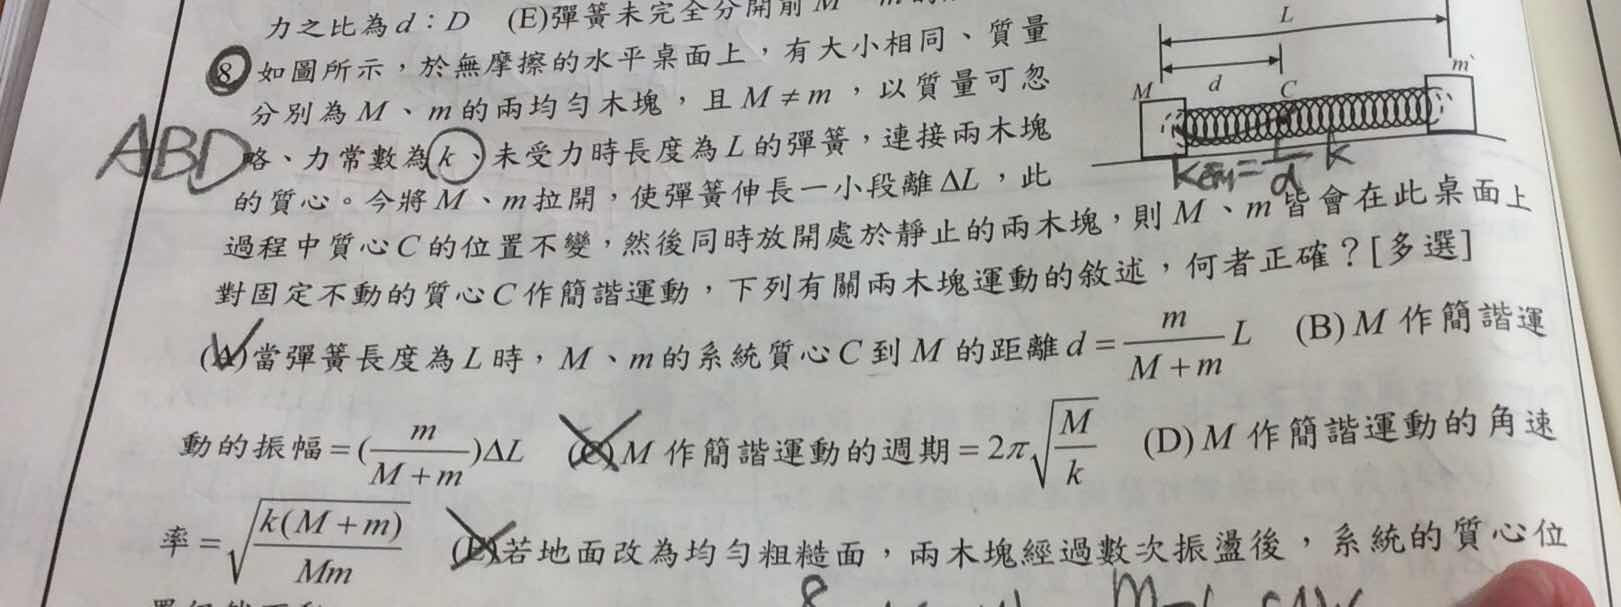 力之比為 d：D (E)彈簧未完全分開前 M
L
8 如圖所示，於無摩擦的水平桌面上，有大小相同、質量
M d C m
分別為 M、m 的兩均勻木塊，且 M≠m，以質量可忽
ABD
略、力常數為 k、未受力時長度為 L 的彈簧，連接兩木塊
的質心。今將 M、m 拉開，使彈簧伸長一小段離 ΔL，此
過程中質心 C 的位置不變，然後同時放開處於靜止的兩木塊，則 M、m 皆會在此桌面上
對固定不動的質心 C 作簡諧運動，下列有關兩木塊運動的敘述，何者正確？[多選]
(A)當彈簧長度為 L 時，M、m 的系統質心 C 到 M 的距離 d = m/(M+m) L (B) M 作簡諧運
動的振幅=(m/(M+m))ΔL (C) M 作簡諧運動的週期=2π√(M/k) (D) M 作簡諧運動的角速
率=√(k(M+m)/Mm) (E)若地面改為均勻粗糙面，兩木塊經過數次振盪後，系統的質心位